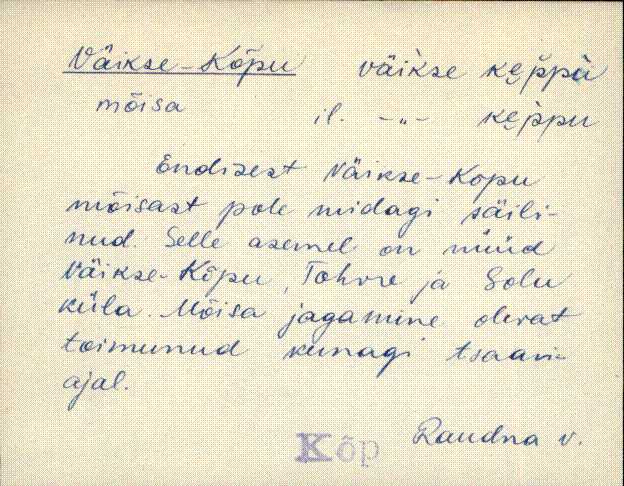 Väikse-Kõpu väikse kęp̀pù
mõisa il. -„- kęp̀pu
Endisest Väikse-Kõpu
mõisast pole midagi säili-
nud. Selle asemel on nüüd
Väikse-Kõpu, Tohvre ja Solu
küla. Mõisa jagamine olevat
toimunud kunagi tsaari-
ajal.
Kõp Raudna v.